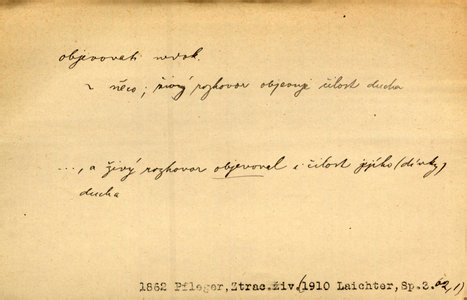 objevovati nedok.
~ něco; živý rozhovor objevuje čilost ducha
..., a živý rozhovor objevoval i čilost jejího (dívky)
ducha
1862 Pfleger, Ztrac.živ.(1910 Laichter, Sp.2.